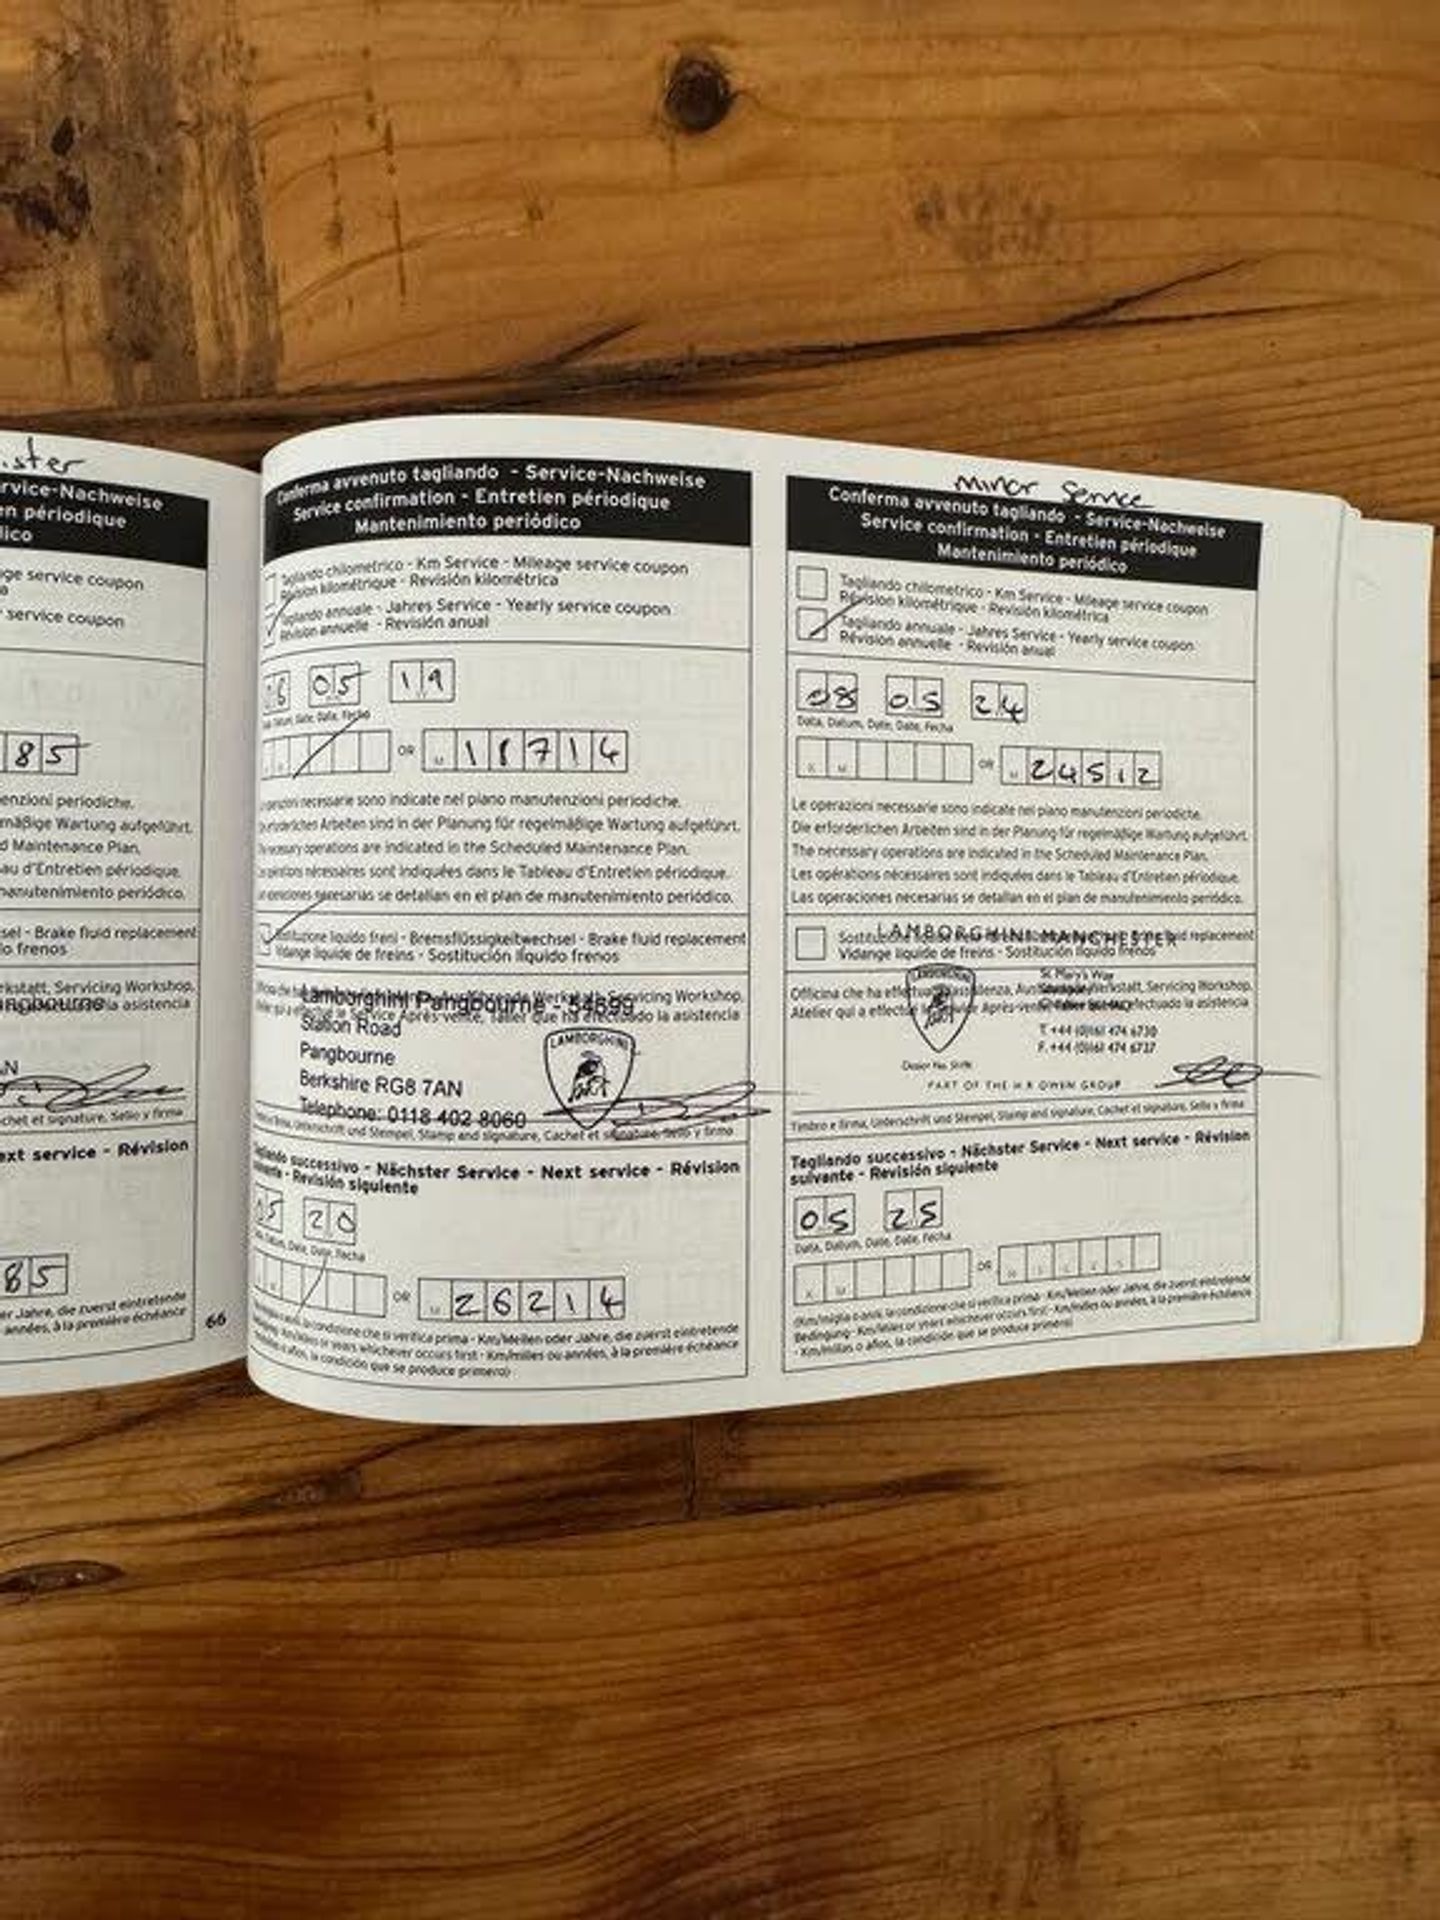 ister
rvice-Nachweise
en périodique
dico
ge service coupon
service coupon
85
enzioni periodiche.
mäßige Wartung aufgeführt.
d Maintenance Plan.
au d'Entretien périodique.
manutenimiento periódico.
sel - Brake fluid replacement
lo frenos
rkstatt, Servicing Workshop,
la asistencia
AN
chet et signature, Sello y firma
ext service - Révision
85
er Jahre, die zuerst eintretende
années, à la première échéance
66
Conferma avvenuto tagliando - Service-Nachweise
Service confirmation - Entretien périodique
Mantenimiento periódico
Tagliando chilometrico - Km Service - Mileage service coupon
Révision kilométrique - Revisión kilométrica
Tagliando annuale - Jahres Service - Yearly service coupon
Révision annuelle - Revisión anual
05 19
Data, Datum, Date, Date, Fecha
OR M 18714
Le operazioni necessarie sono indicate nel piano manutenzioni periodiche.
Die erforderlichen Arbeiten sind in der Planung für regelmäßige Wartung aufgeführt.
The necessary operations are indicated in the Scheduled Maintenance Plan.
Les opérations nécessaires sont indiquées dans le Tableau d'Entretien périodique.
Las operaciones necesarias se detallan en el plan de manutenimiento periódico.
Sostituzione liquido freni - Bremsflüssigkeitwechsel - Brake fluid replacement
Vidange liquide de freins - Sostitución líquido frenos
Servicing Workshop,
Lamborghini Pangbourne - 54699
Service Après-vente, Taller que ha efectuado la asistencia
Station Road
Pangbourne
Berkshire RG8 7AN
Telephone: 0118 402 8060
LAMBORGHINI
Timbro e firma, Unterschrift und Stempel, Stamp and signature, Cachet et signature, Sello y firma
Tagliando successivo - Nächster Service - Next service - Révision
suivante - Revisión siguiente
05 20
Data, Datum, Date, Date, Fecha
OR M 26214
(Km/miglia o anni, la condizione che si verifica prima - Km/Meilen oder Jahre, die zuerst eintretende
Bedingung - Km/Miles or years whichever occurs first - Km/milles ou années, à la première échéance
- Km/millas o años, la condición que se produce primero)
Minor Service
Conferma avvenuto tagliando - Service-Nachweise
Service confirmation - Entretien périodique
Mantenimiento periódico
Tagliando chilometrico - Km Service - Mileage service coupon
Révision kilométrique - Revisión kilométrica
Tagliando annuale - Jahres Service - Yearly service coupon
Révision annuelle - Revisión anual
08 05 24
Data, Datum, Date, Date, Fecha
K M OR M 24512
Le operazioni necessarie sono indicate nel piano manutenzioni periodiche.
Die erforderlichen Arbeiten sind in der Planung für regelmäßige Wartung aufgeführt.
The necessary operations are indicated in the Scheduled Maintenance Plan.
Les opérations nécessaires sont indiquées dans le Tableau d'Entretien périodique.
Las operaciones necesarias se detallan en el plan de manutenimiento periódico.
LAMBORGHINI MANCHESTER
Vidange liquide de freins - Sostitución líquido frenos
LAMBORGHINI
St. Mary's Way
Officina che ha effettuato Werkstatt, Servicing Workshop,
Atelier qui a effectué le Service Après-vente, efectuado la asistencia
T. +44 (0)161 474 6730
F. +44 (0)161 474 6737
PART OF THE H.R OWEN GROUP
Timbro e firma, Unterschrift und Stempel, Stamp and signature, Cachet et signature, Sello y firma
Tagliando successivo - Nächster Service - Next service - Révision
suivante - Revisión siguiente
05 25
Data, Datum, Date, Date, Fecha
K M OR
(Km/miglia o anni, la condizione che si verifica prima - Km/Meilen oder Jahre, die zuerst eintretende
Bedingung - Km/Miles or years whichever occurs first - Km/milles ou années, à la première échéance
- Km/millas o años, la condición que se produce primero)